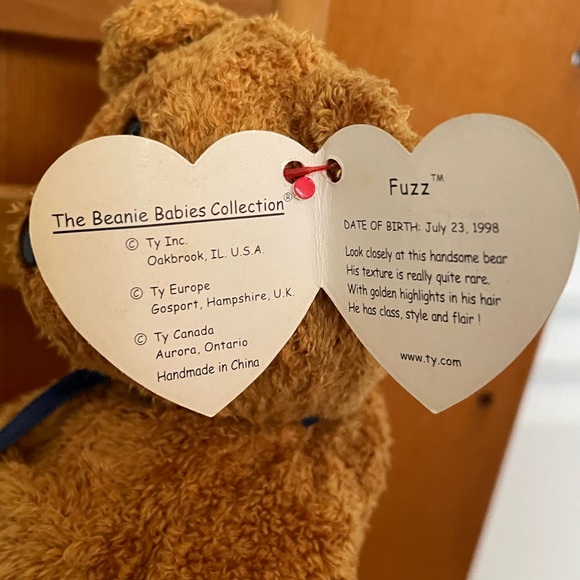 The Beanie Babies Collection®
© Ty Inc.
Oakbrook, IL. U.S.A.
© Ty Europe
Gosport, Hampshire, U.K.
© Ty Canada
Aurora, Ontario
Handmade in China
Fuzz™
DATE OF BIRTH: July 23, 1998
Look closely at this handsome bear
His texture is really quite rare.
With golden highlights in his hair
He has class, style and flair !
www.ty.com